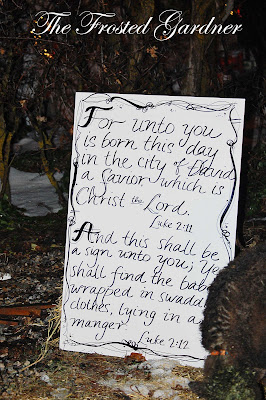 The Frosted Gardner
For unto you
is born this day
in the city of David
a Savior which is
Christ the Lord.
Luke 2:11
And this shall be
a sign unto you; Ye
shall find the babe
wrapped in swadd
clothes, lying in a
manger.
Luke 2:12